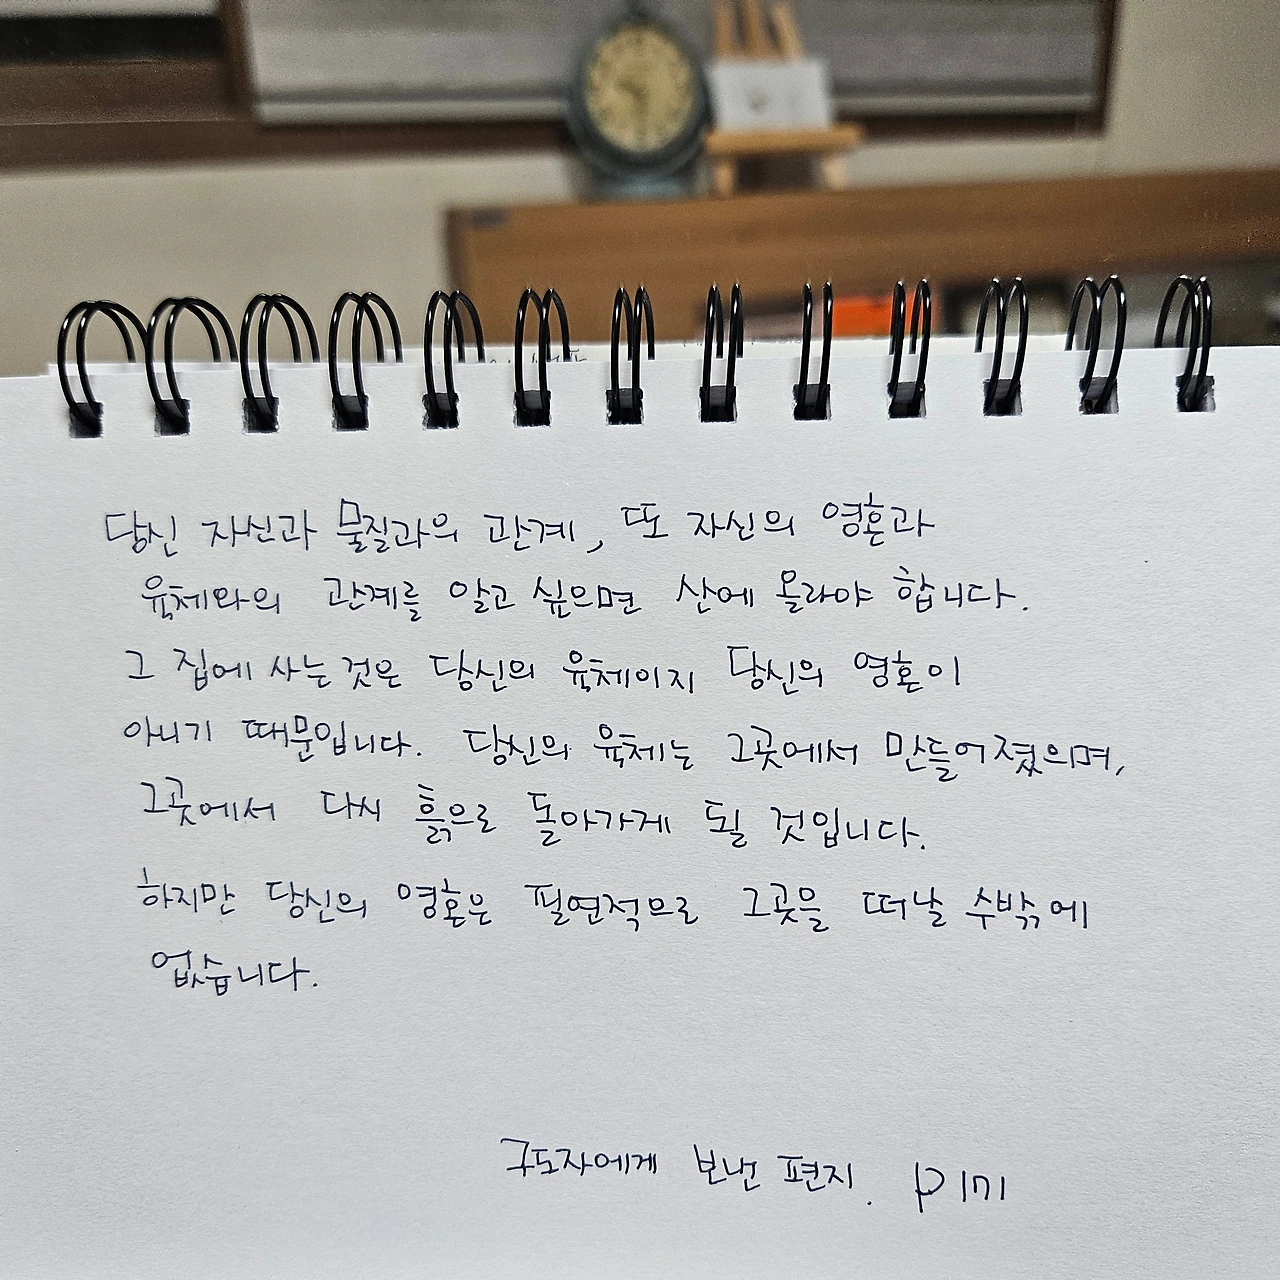 당신 자신과 물질과의 관계, 또 자신의 영혼과
육체와의 관계를 알고 싶으면 산에 올라야 합니다.
그 집에 사는 것은 당신의 육체이지 당신의 영혼이
아니기 때문입니다. 당신의 육체는 그곳에서 만들어졌으며,
그곳에서 다시 흙으로 돌아가게 될 것입니다.
하지만 당신의 영혼은 필연적으로 그곳을 떠날 수밖에
없습니다.
구도자에게 보낸 편지. pini